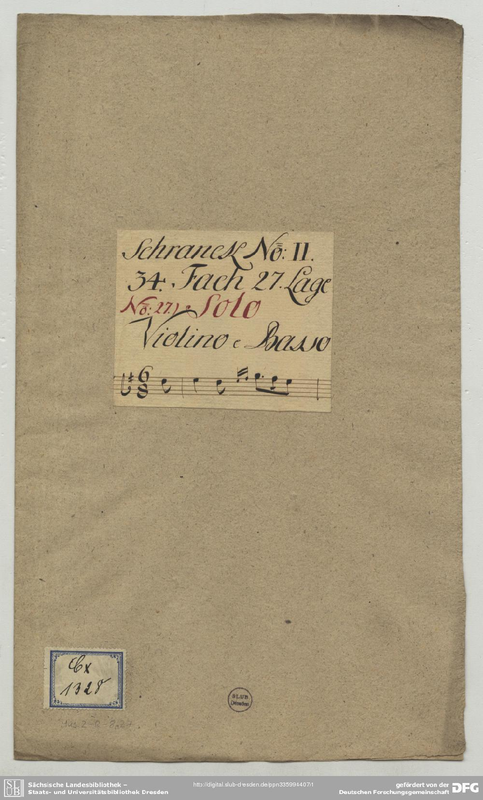 Schranck No: II.
34. Fach 27. Lage
No: 27.) Solo
Violino e Basso
6
8
Cx
1328
SLUB
Dresden
Sächsische Landesbibliothek –
Staats- und Universitätsbibliothek Dresden
http://digital.slub-dresden.de/ppn335994467/1
gefördert von der
Deutschen Forschungsgemeinschaft
DFG